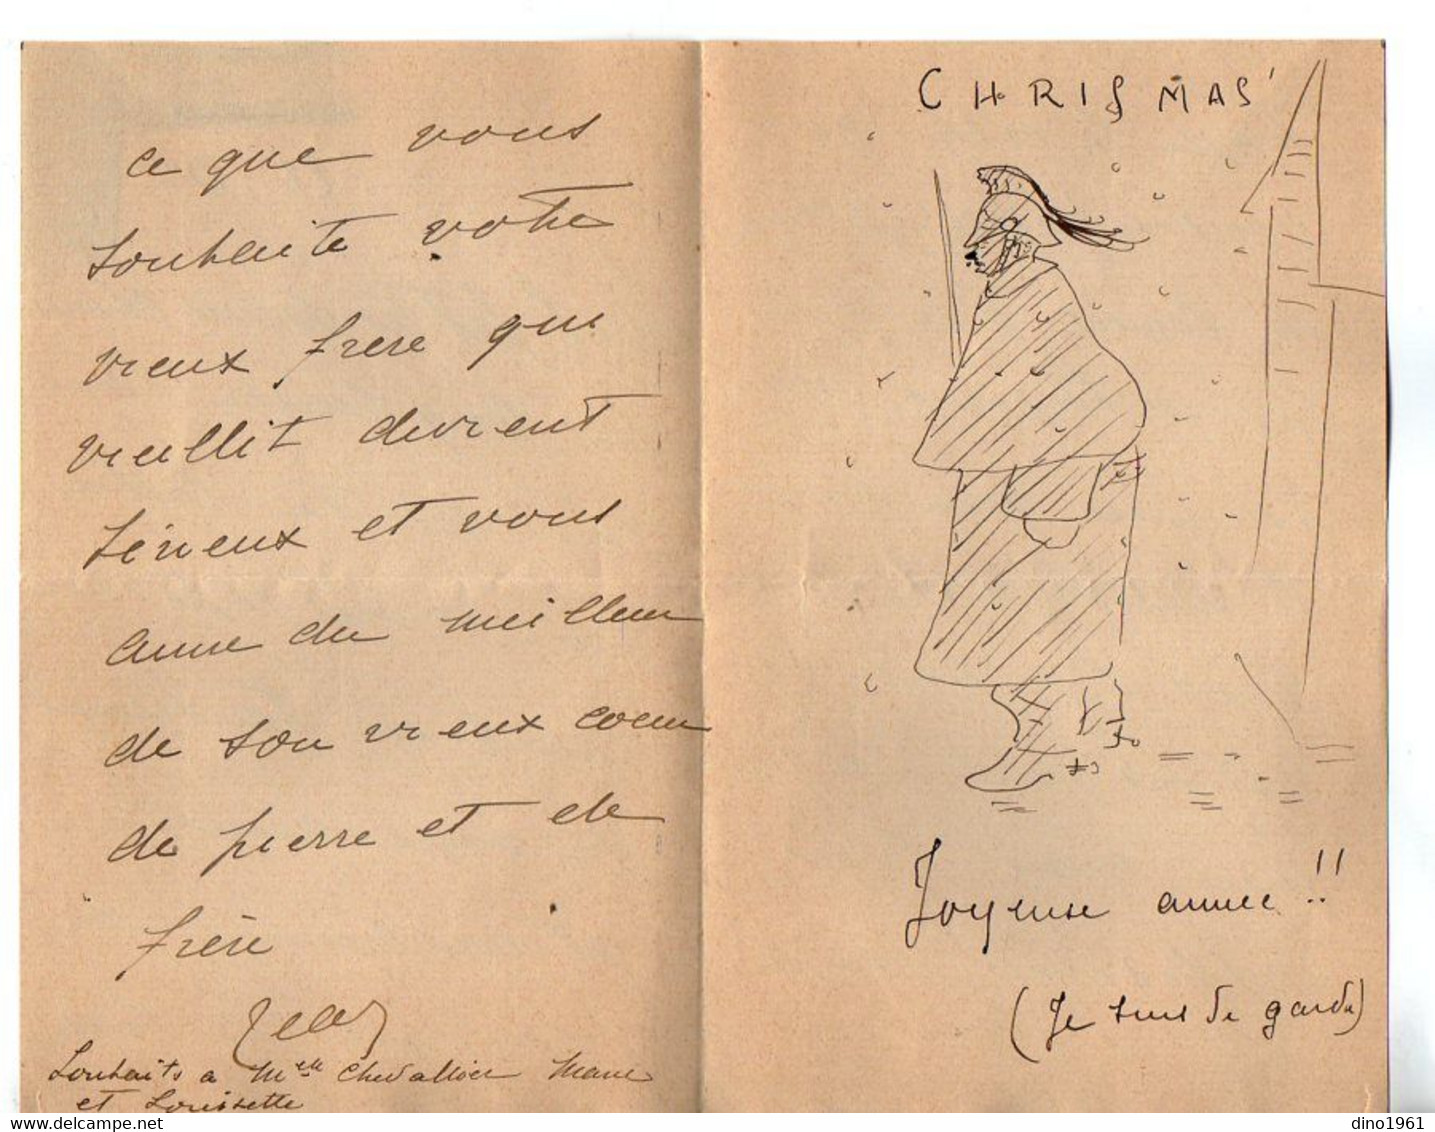 ce que vous
souhaite votre
vieux frere qui
vieillit devient
sérieux et vous
aime du meilleur
de son vieux coeur
de pierre et de
frère
Souhaits a Melle Chevallier Marie
et Louisette
CHRISMAS'
Joyeuse année !!
(Je suis de garde)
delcampe.net
dino1961